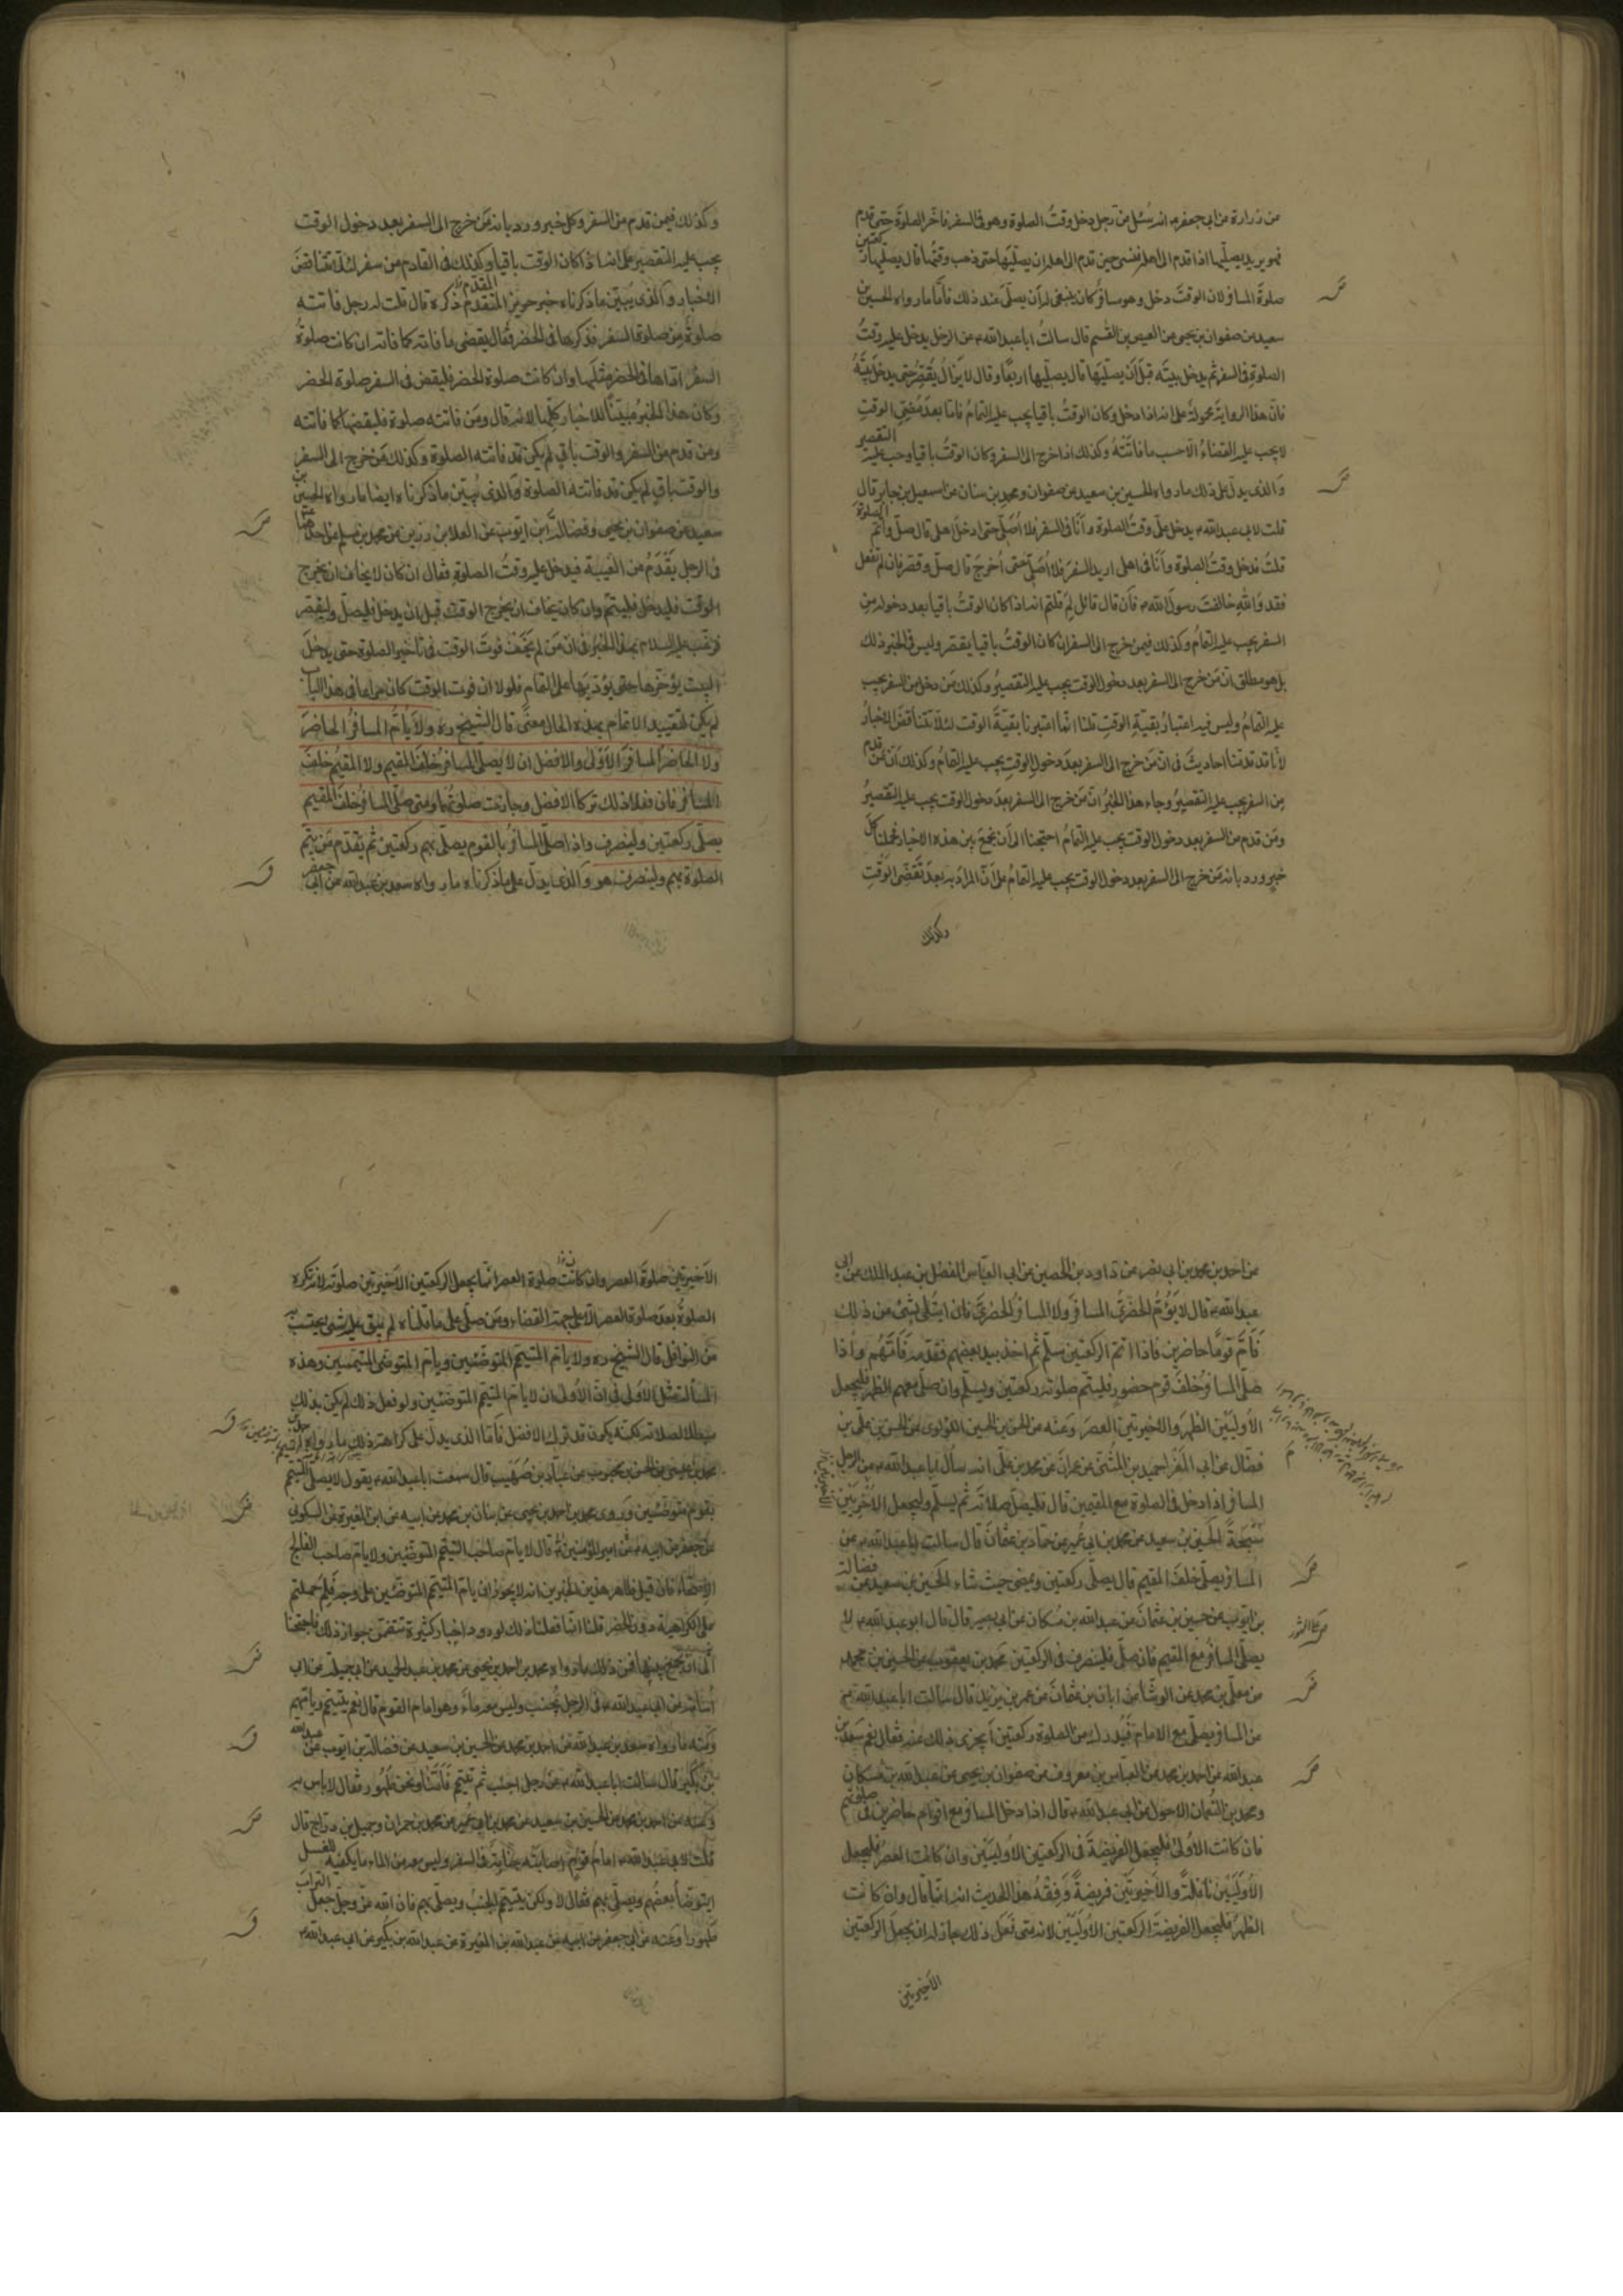 من زرارة عن ابي جعفر ع انه سئل عن رجل دخل وقت الصلوة وهو في السفر فاخر الصلوة حتى قدم
فهو يريد يصليها اذا قدم الى اهله فنسي حين قدم الى اهله ان يصليها حتى ذهب وقتها قال يصليها ركعتين
صلوة المسافر لان الوقت دخل وهو مسافر كان ينبغي له ان يصلي عند ذلك فاما ما رواه الحسين بن
سعيد عن صفوان بن يحيى عن العيص بن القسم قال سالت ابا عبد الله ع عن الرجل يدخل عليه وقت
الصلوة في السفر ثم يدخل بيته قبل ان يصليها قال يصليها اربعا وقال لا يزال يقصر حتى يدخل بيته
فان هذا الرواية محمولة على انه اذا دخل وكان الوقت باقيا يجب عليه التمام فاما بعد مضي الوقت
لا يجب عليه القضاء الا حسب ما فاتته وكذلك اذا خرج الى السفر وكان الوقت باقيا وجب عليه التقصير
والذي يدل على ذلك ما رواه الحسين بن سعيد عن صفوان ومحمد بن سنان عن اسمعيل بن جابر قال
قلت لابي عبد الله ع يدخل علي وقت الصلوة وانا في السفر فلا اصلي حتى ادخل اهلي قال صل واتم الصلوة
قلت فدخل وقت الصلوة وانا في اهلي اريد السفر فلا اصلي حتى اخرج قال صل وقصر فان لم تفعل
فقد والله خالفت رسول الله ص فان قال قائل لم قلتم انه اذا كان الوقت باقيا بعد دخوله من
السفر يجب عليه التمام وكذلك فيمن خرج الى السفر ان كان الوقت باقيا يقصر وليس في الخبر ذلك
بل هو مطلق ان من خرج الى السفر بعد دخول الوقت يجب عليه التقصير وكذلك من دخل من السفر يجب
عليه التمام وليس فيه اعتبار بقية الوقت قلنا انما اعتبرنا بقية الوقت لئلا تتناقض الاخبار
لانا قد قدمنا احاديث في ان من خرج الى السفر بعد دخول الوقت يجب عليه التمام وكذلك ان من قدم
من السفر يجب عليه التقصير وجاء هذا الخبر ان من خرج الى السفر بعد دخول الوقت يجب عليه التقصير
ومن قدم من السفر بعد دخول الوقت يجب عليه التمام احتجنا الى ان نجمع بين هذه الاخبار فحملنا كل
خبر ورد بانه من خرج الى السفر بعد دخول الوقت يجب عليه التمام على ان المراد به بعد تقضي الوقت
وكذلك
وكذلك فيمن قدم من السفر وكل خبر ورد بانه من خرج الى السفر بعد دخول الوقت
يجب عليه التقصير على انه اذا كان الوقت باقيا وكذلك في القادم من سفر لئلا تتناقض
الاخبار والذي يبين ما ذكرناه خبر حريز المتقدم ذكره قال قلت له رجل فاتته
صلوة من صلوة السفر فذكرها في الحضر فقال يقضي ما فاته كما فاته ان كانت صلوة
السفر اداها في الحضر مثلها وان كانت صلوة الحضر فليقض في السفر صلوة الحضر
وكان هذا الخبر مبينا للاخبار كلها لانه قال ومن فاتته صلوة فليقضها كما فاتته
ومن قدم من السفر والوقت باق لم يكن قد فاتته الصلوة وكذلك من خرج الى السفر
والوقت باق لم يكن قد فاتته الصلوة والذي يبين ما ذكرناه ايضا ما رواه الحسين بن
سعيد عن صفوان بن يحيى وفضالة بن ايوب عن العلا بن رزين عن محمد بن مسلم عن احدهما
في الرجل يقدم من الغيبة فيدخل عليه وقت الصلوة فقال ان كان لا يخاف ان يخرج
الوقت فليدخل فليتم وان كان يخاف ان يخرج الوقت قبل ان يدخل فليصل وليقصر
فنبه عليه السلام بهذا الخبر في ان من لم يخف فوت الوقت في تاخير الصلوة حتى يدخل
البيت يؤخرها حتى يؤديها على التمام فلولا ان فوت الوقت كان مراعا في هذا الباب
لم يكن لتقييد الاتمام بهذه الحال معنى قال الشيخ ره ولا يأتم المسافر الحاضر
ولا الحاضر المسافر الاولى والافضل ان لا يصلي المسافر خلف المقيم ولا المقيم خلف
المسافر فان فعلا ذلك تركا الافضل وجازت صلوتهما ومتى صلى المسافر خلف المقيم
يصلي ركعتين ولينصرف واذا صلى المسافر بالقوم يصلي بهم ركعتين ثم يقدم من يتم
الصلوة بهم ولينصرف هو والذي يدل على ما ذكرناه ما رواه سعد بن عبد الله عن ابي جعفر
عن احمد بن محمد بن ابي نصر عن داود بن الحصين عن ابي العباس الفضل بن عبد الملك عن ابي
عبد الله ع قال لا يؤم الحضري المسافر ولا المسافر الحضري فان ابتلي بشئ من ذلك
فام قوما حاضرين فاذا اتم الركعتين سلم ثم اخذ بيد بعضهم فقدمه فامهم واذا
صلى المسافر خلف قوم حضور فليتم صلوته ركعتين ويسلم وان صلى معهم الظهر فليجعل
الاوليين الظهر والاخيرتين العصر وعنه عن الحسن بن الحسين اللؤلوي عن الحسن بن علي بن
فضال عن ابي المغرا حميد بن المثنى عن عمران عن محمد بن علي انه سأل ابا عبد الله ع عن الرجل
المسافر اذا دخل في الصلوة مع المقيمين قال فليصل صلاته ثم يسلم وليجعل الاخرتين
سبحة الحسين بن سعيد عن محمد بن ابي عمير عن حماد بن عثمان قال سالت ابا عبد الله ع عن
المسافر يصلي خلف المقيم قال يصلي ركعتين ويمضي حيث شاء الحسين بن سعيد عن فضالة
بن ايوب عن حسين بن عثمان عن عبد الله بن مسكان عن ابي بصير قال قال ابو عبد الله ع لا
يصلي المسافر مع المقيم فان صلى فلينصرف في الركعتين محمد بن يعقوب عن الحسين بن محمد
عن معلى بن محمد عن الوشا عن ابان بن عثمان عن عمر بن يزيد قال سالت ابا عبد الله ع
عن المسافر يصلي مع الامام فيدرك من الصلوة ركعتين أيجزى ذلك عنه فقال نعم سعد بن
عبد الله عن احمد بن محمد عن العباس بن معروف عن صفوان بن يحيى عن عبد الله بن مسكان
ومحمد بن النعمان الاحول عن ابي عبد الله ع قال اذا دخل المسافر مع اقوام حاضرين في صلوتهم
فان كانت الاولى فليجعل الفريضة في الركعتين الاوليين وان كانت العصر فليجعل
الاوليين نافلة والاخيرتين فريضة وفقه هذا الحديث انه انما قال وان كانت
الظهر فليجعل الفريضة الركعتين الاوليين لانه متى فعل ذلك جاز له ان يجعل الركعتين
الاخيرتين
الاخيرتين صلوة العصر وان كانت صلوة العصر انما يجعل الركعتين الاخيرتين صلوته لانه تكره
الصلوة بعد صلوة العصر الا على جهة القضاء ومن صلى على ما قلناه لم يبق عليه شئ يحتسب به
من النوافل قال الشيخ ره ولا يأم المتيمم المتوضئين ويأم المتوضي المتيممين وهذه
المسألة مثل الاولى في ان الاولى ان لا يأم المتيمم المتوضئين ولو فعل ذلك لم يكن بذلك
مبطلا لصلاته لكنه يكون قد ترك الافضل فاما الذي يدل على كراهية ذلك ما رواه
محمد بن عيسى عن الحسن بن محبوب عن عباد بن صهيب قال سمعت ابا عبد الله ع يقول لا يصلي المتيمم
بقوم متوضئين وروى محمد بن احمد بن يحيى عن بنان بن محمد عن ابيه عن ابن المغيرة عن السكوني
عن جعفر عن ابيه عن امير المؤمنين ع قال لا يأم صاحب التيمم المتوضئين ولا يأم صاحب الفالج
الاصحاء فان قيل ظاهر هذين الخبرين انه لا يجوز ان يأم المتيمم المتوضئين على وجه فلم حملتم
على الكراهية دون الحظر قلنا انما فعلنا ذلك لورود اخبار كثيرة تتضمن جواز ذلك فاحتجنا
الى ان نجمع بينها فمن ذلك ما رواه محمد بن احمد بن يحيى عن محمد بن عبد الحميد عن ابي جميلة عن ابي
اسامة عن ابي عبد الله ع في الرجل يجنب وليس معه ماء وهو امام القوم قال نعم يتيمم ويأمهم
وعنه ما رواه سعد بن عبد الله عن احمد بن محمد عن الحسين بن سعيد عن فضالة بن ايوب عن عبد الله
بن بكير قال سالت ابا عبد الله ع عن رجل اجنب ثم تيمم فامنا ونحن طهور فقال لا باس به
وعنه عن احمد بن محمد عن الحسين بن سعيد عن محمد بن ابي عمير عن محمد بن حمران وجميل بن دراج قال
قلت لابي عبد الله ع امام قوم اصابته جنابة في السفر وليس معه من الماء ما يكفيه للغسل
ايتوضأ بعضهم ويصلي بهم فقال لا ولكن يتيمم الجنب ويصلي بهم فان الله عز وجل جعل التراب
طهورا وعنه عن ابي جعفر عن ابيه عن عبد الله بن المغيرة عن عبد الله بن بكير عن ابي عبد الله ع